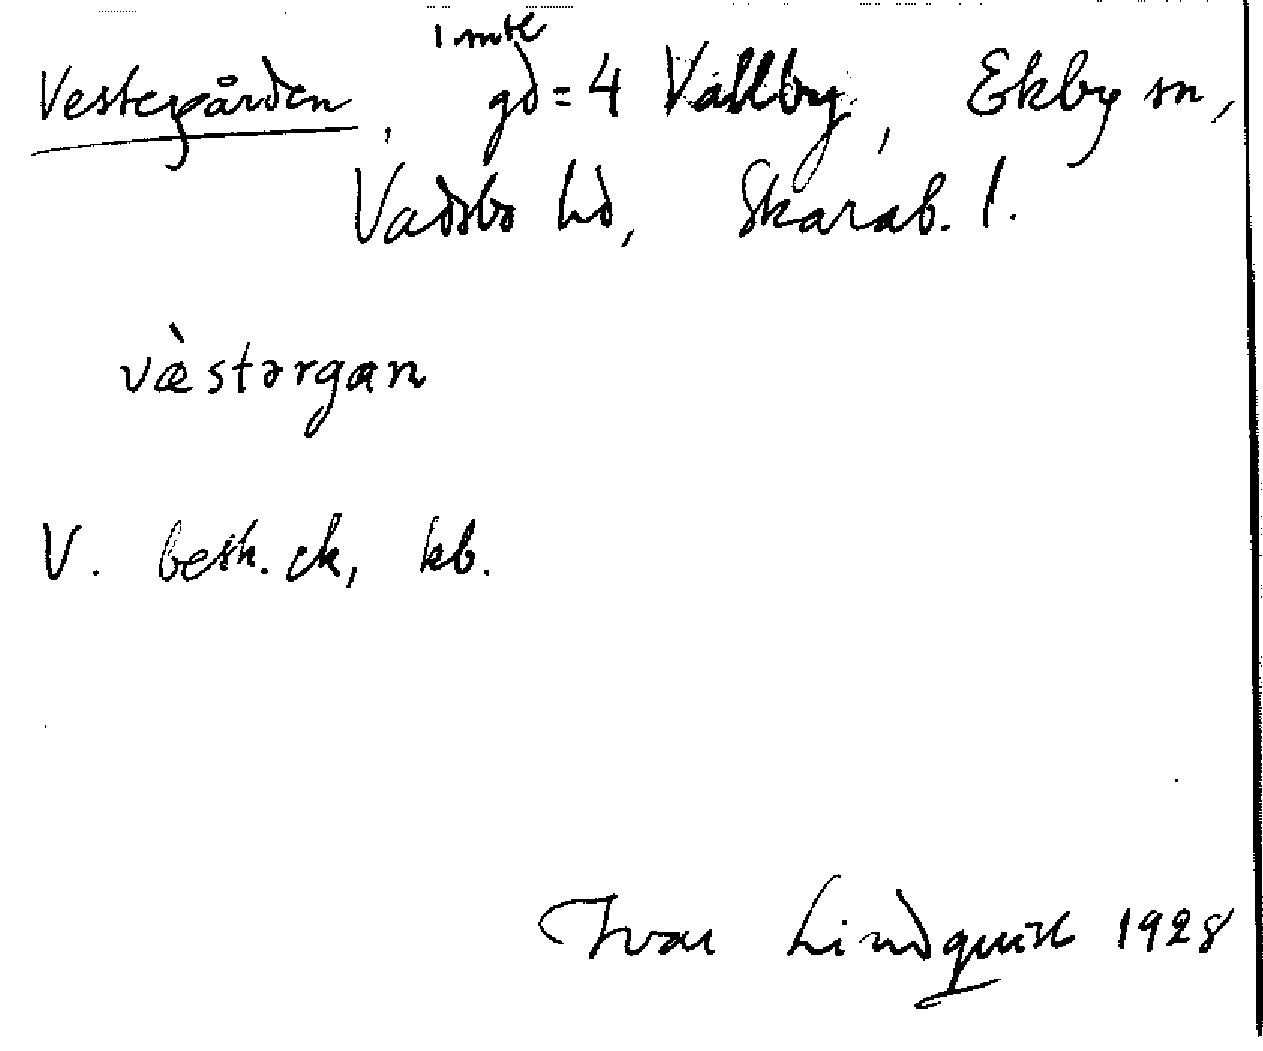 1 mtl
Vestegården, gd = 4 Vallby, Ekby sn,
Vadsbo hd, Skarab. l.
væ̀stərgan
V. besk. ck, kb.
Ivar Lindquist 1928